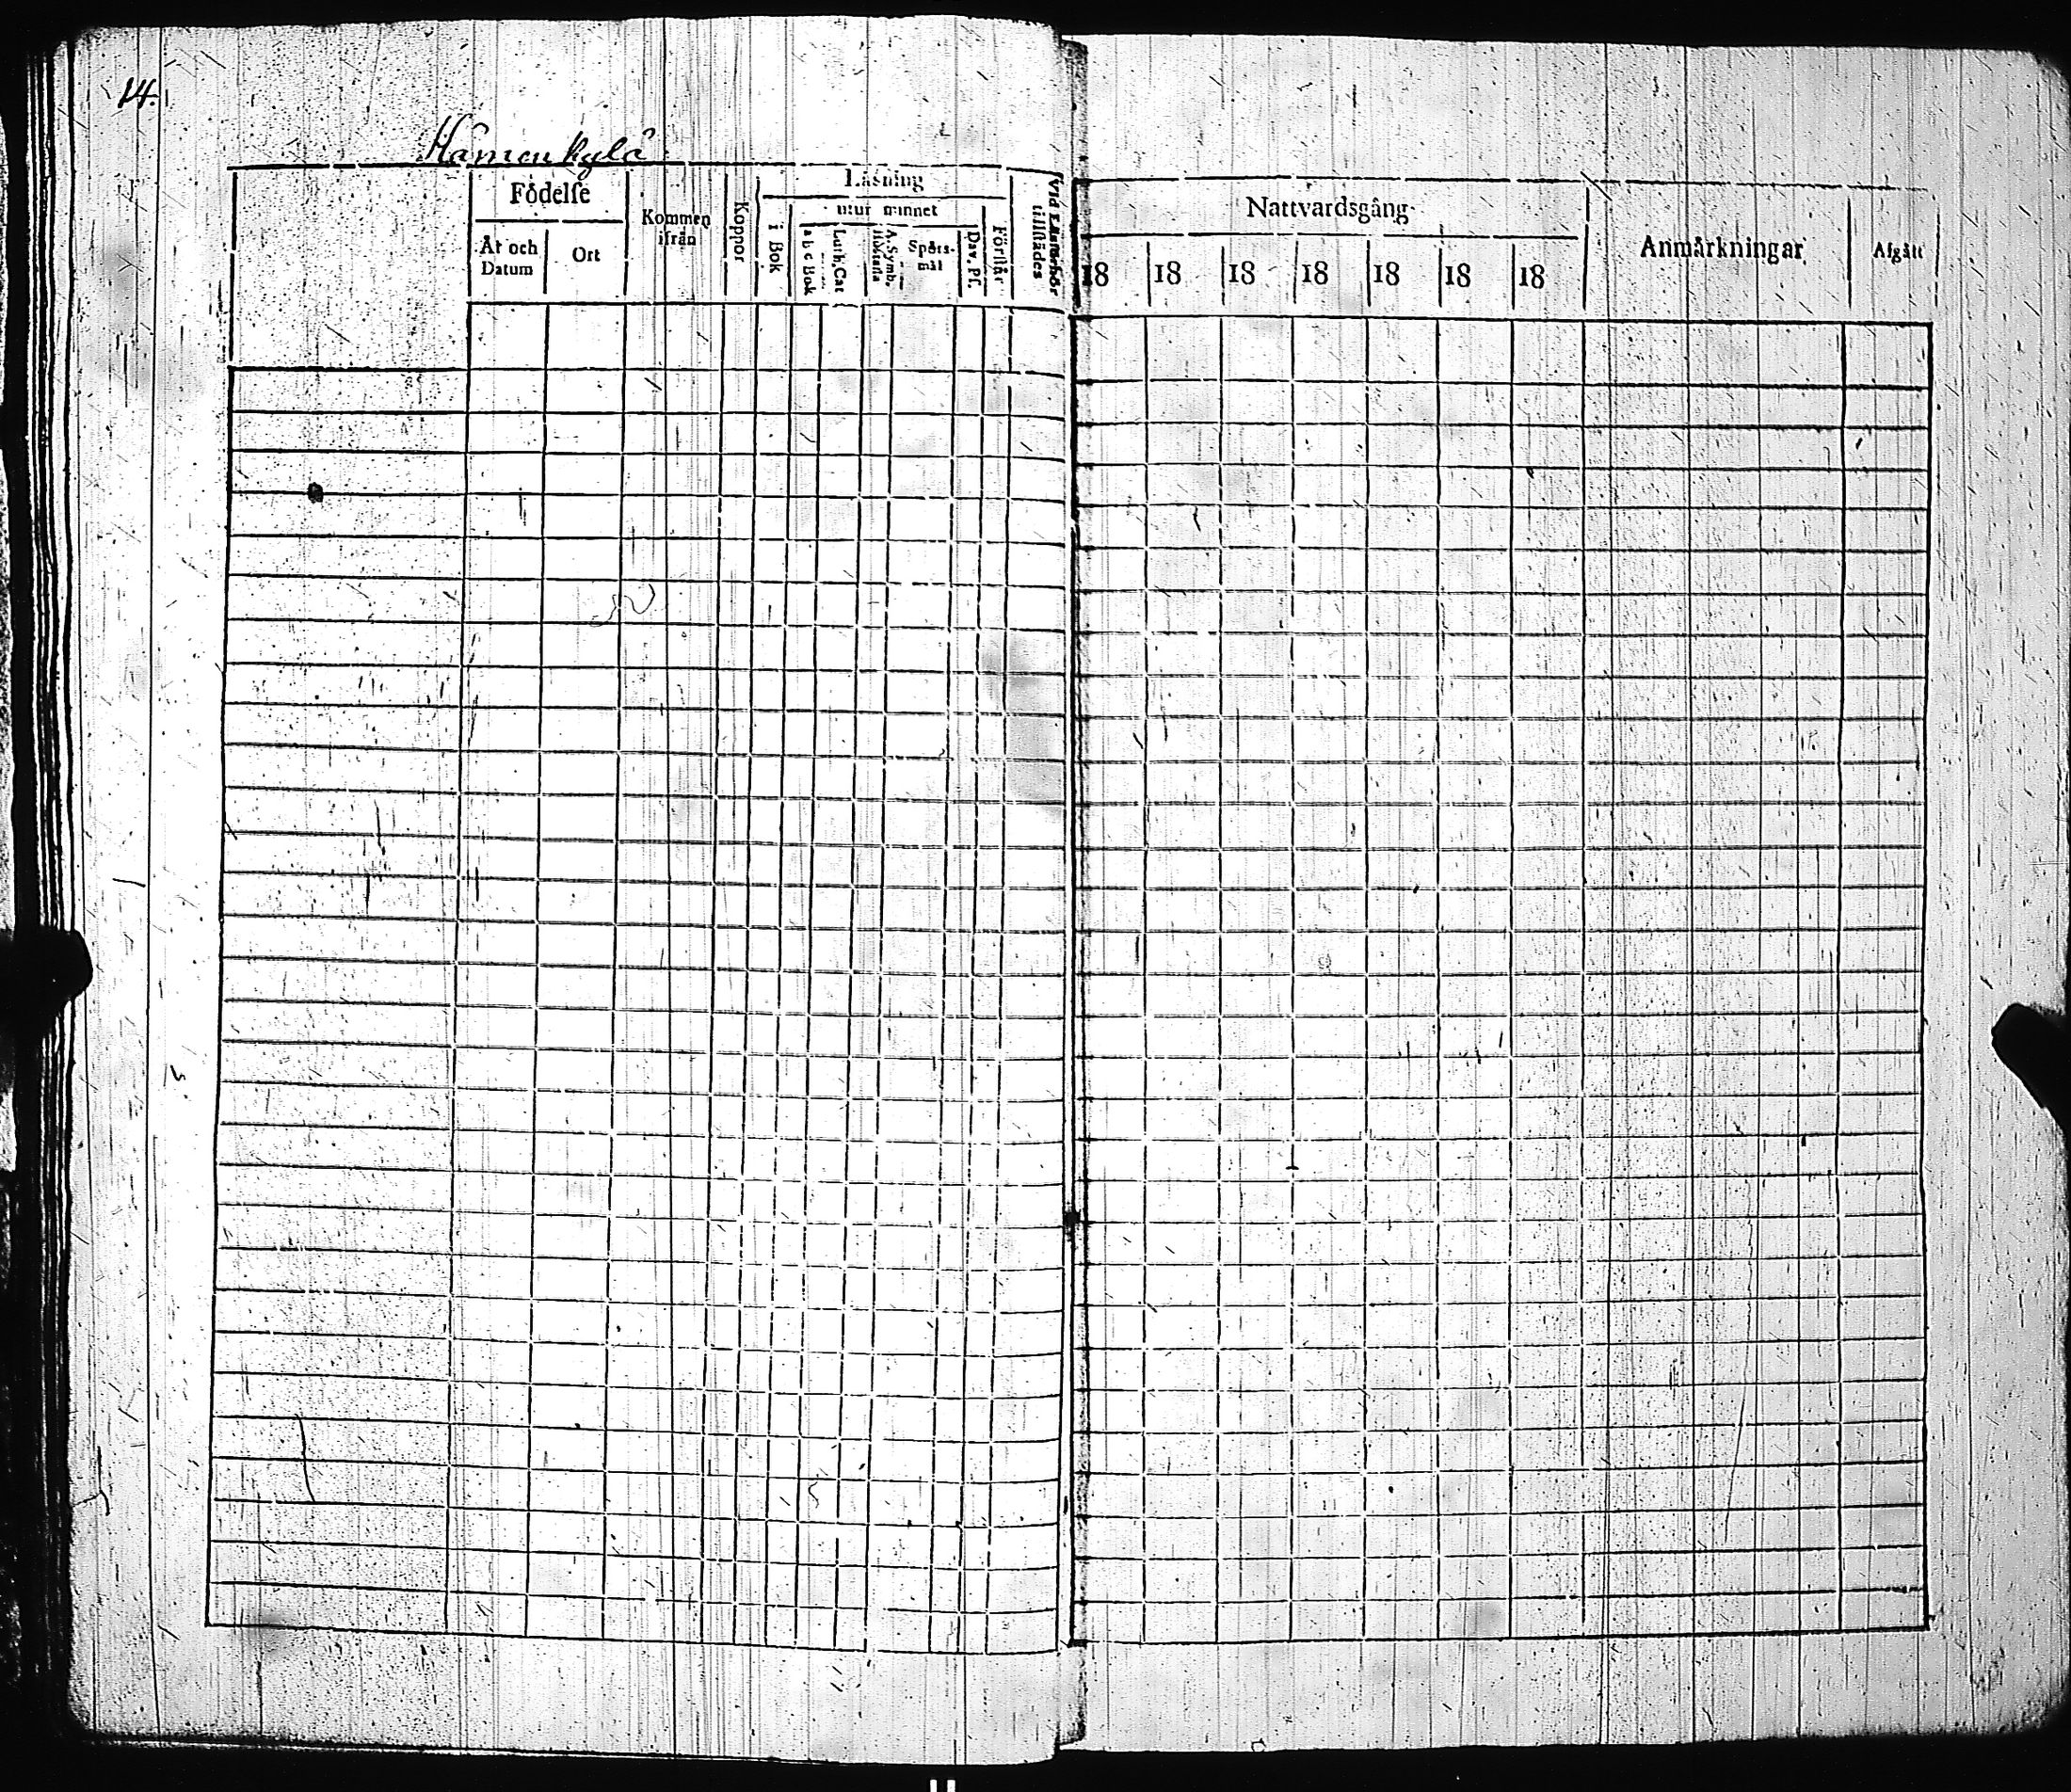 14.
Hämenkylä
Födelse
År och Datum
Ort
Kommen ifrån
Koppor
Läsning
i Bok
utur minnet
a b c Bok
Luth. Cat
A. Symb.
Hustafla
Spörsmål
Dav. Ps.
Förstår
Vid Läsförhör tillstädes
Nattvardsgång
18 18 18 18 18 18 18
Anmärkningar
Afgått